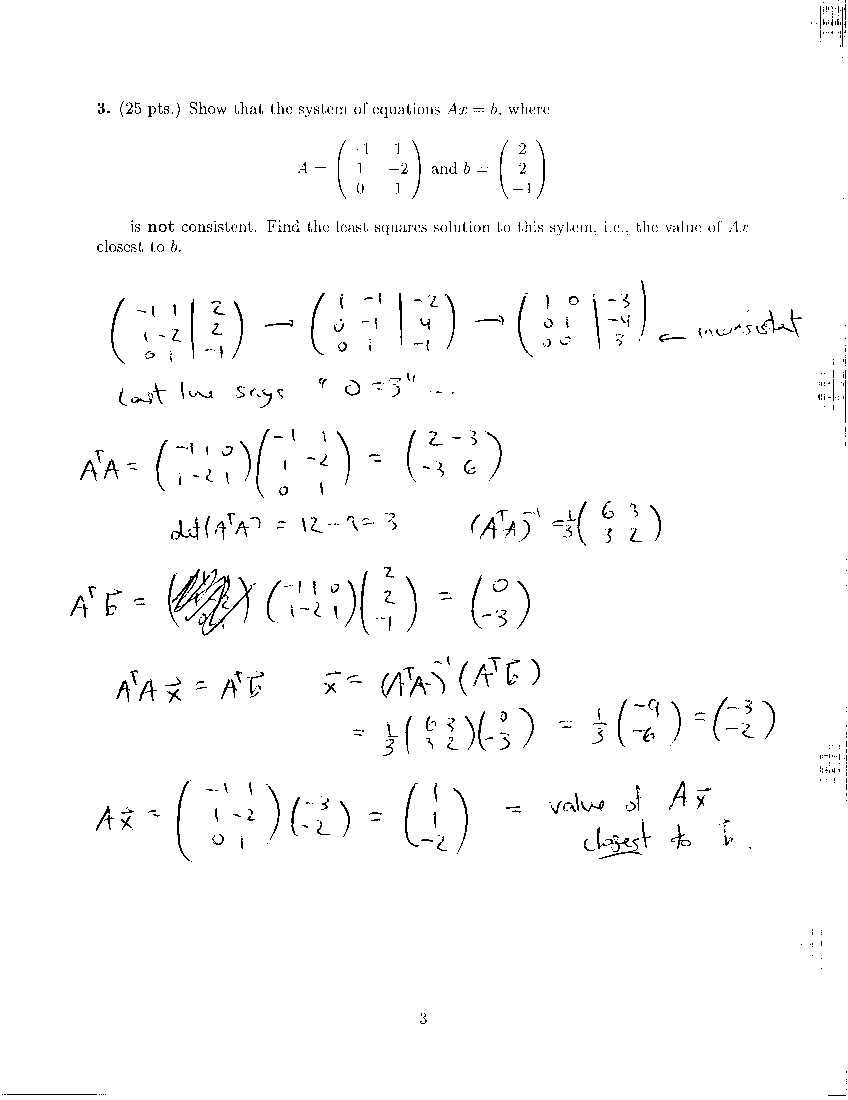 3. (25 pts.) Show that the system of equations Ax = b, where
A = ( -1 1 ; 1 -2 ; 0 1 ) and b = ( 2 ; 2 ; -1 )
is not consistent. Find the least squares solution to this sytem, i.e., the value of Ax
closest to b.
( -1 1 | 2 ; 1 -2 | 2 ; 0 1 | -1 ) → ( 1 -1 | -2 ; 0 -1 | 4 ; 0 1 | -1 ) → ( 1 0 | -3 ; 0 1 | -4 ; 0 0 | 3 ) ← inconsistent
Last line says "0 = 3" ...
AᵀA = ( -1 1 0 ; 1 -2 1 ) ( -1 1 ; 1 -2 ; 0 1 ) = ( 2 -3 ; -3 6 )
det(AᵀA) = 12 - 9 = 3 (AᵀA)⁻¹ = 1/3 ( 6 3 ; 3 2 )
Aᵀb⃗ = ( -1 1 0 ; 1 -2 1 ) ( 2 ; 2 ; -1 ) = ( 0 ; -3 )
AᵀA x⃗ = Aᵀb⃗ x⃗ = (AᵀA)⁻¹ (Aᵀb⃗)
= 1/3 ( 6 3 ; 3 2 ) ( 0 ; -3 ) = 1/3 ( -9 ; -6 ) = ( -3 ; -2 )
Ax⃗ = ( -1 1 ; 1 -2 ; 0 1 ) ( -3 ; -2 ) = ( 1 ; 1 ; -2 ) = value of Ax⃗
closest to b⃗.
3